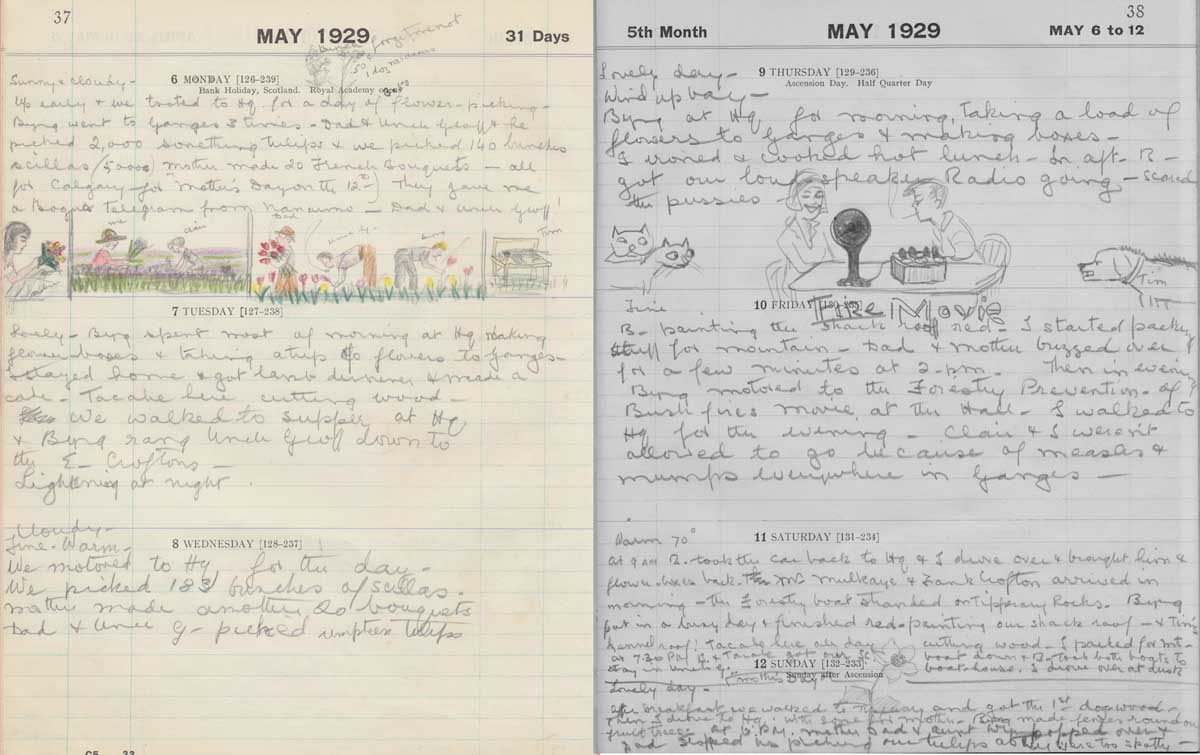 37
MAY 1929
31 Days
forget-me-not
Sunny & cloudy -
6 MONDAY [126-239]
Bank Holiday, Scotland. Royal Academy
Up early & we tooted to Hq. for a day of flower-picking -
Byng went to Ganges 3 times - Dad & Uncle Geoff & he
picked 2,000 something tulips & we picked 140 bunches
scillas (5000) mother made 20 French Bouquets - all
for Calgary - for "Mother's Day on the 12th) They gave me
a Bogus Telegram from Nanaimo - Dad & Uncle Geoff!
me
Clair
Dad
Uncle G-
Byng
Tim
mother
7 TUESDAY [127-238]
Lovely - Byng spent most of morning at Hq making
flower boxes & taking a trip of flowers to Ganges -
I stayed home & got lamb dinner & made a
cake - Tacake here cutting wood -
We walked to supper at Hq
& Byng rang Uncle Geoff down to
the E- Croftons -
Lightning at night.
Cloudy -
Fine - Warm -
8 WEDNESDAY [128-237]
We motored to Hq for the day -
We picked 183 bunches of scillas.
mother made another 20 bouquets
Dad & Uncle G- picked umpteen tulips
C5 33
38
5th Month
MAY 1929
MAY 6 to 12
Lovely day -
9 THURSDAY [129-236]
Ascension Day. Half Quarter Day
Wind up bay -
Byng at Hq for morning, taking a load of
flowers to Ganges & making boxes -
I ironed & cooked hot lunch - In aft- B -
got our loud speaker Radio going - scared
the pussies -
Tim
Fine
10 FRIDAY [130-235]
Fire Movie
B- painting the shack roof red - I started packing
stuff for mountain - Dad & mother buzzed over
for a few minutes at 2-p.m. Then in evening
Byng motored to the Forestry Prevention - of
Bush fires movie, at the Hall - I walked to
Hq for the evening - Clair & I weren't
allowed to go because of measles &
mumps everywhere in Ganges -
Warm 70°
11 SATURDAY [131-234]
at 9 am B- took the car back to Hq & I drove over & brought him &
flower-boxes back. Mr Mulkaye & Frank Crofton arrived in
morning - the Forestry boat stranded on Tipperary Rocks. Byng
put in a busy day & finished red-painting our shack roof - & Tim's
kennel roof! Tacake here all day cutting wood - I packed for mt-
at 7.30 PM B & Tacake got our
boat down & B- took both boats to
boathouse. I drove over at dusk
12 SUNDAY [132-233]
Sunday after Ascension
(mother's Day)
Lovely day -
after breakfast we walked to and got the 1st dogwood -
Then I drove to Hq. with some for mother - Byng made fences round our
fruit trees - at 2 P.M. mother dad & aunt popped over &
Dad stopped his picking our tulips as they were too spotty -